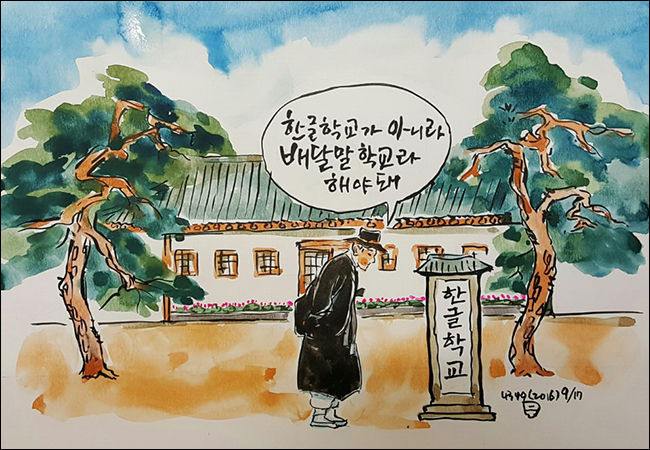 한글학교가 아니라
배달말학교라
해야돼
한글학교
4349(2016) 9/17